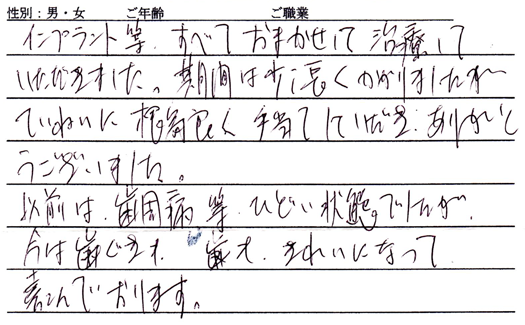 性別：男・女　ご年齢　ご職業
インプラント等、すべておまかせして治療して
いただきました。期間は少し長くかかりましたが
ていねいに根気良く手当てしていただき、ありがと
うございました。
以前は、歯周病等、ひどい状態でしたが、
今は歯ぐきも、歯も、きれいになって
喜んでおります。